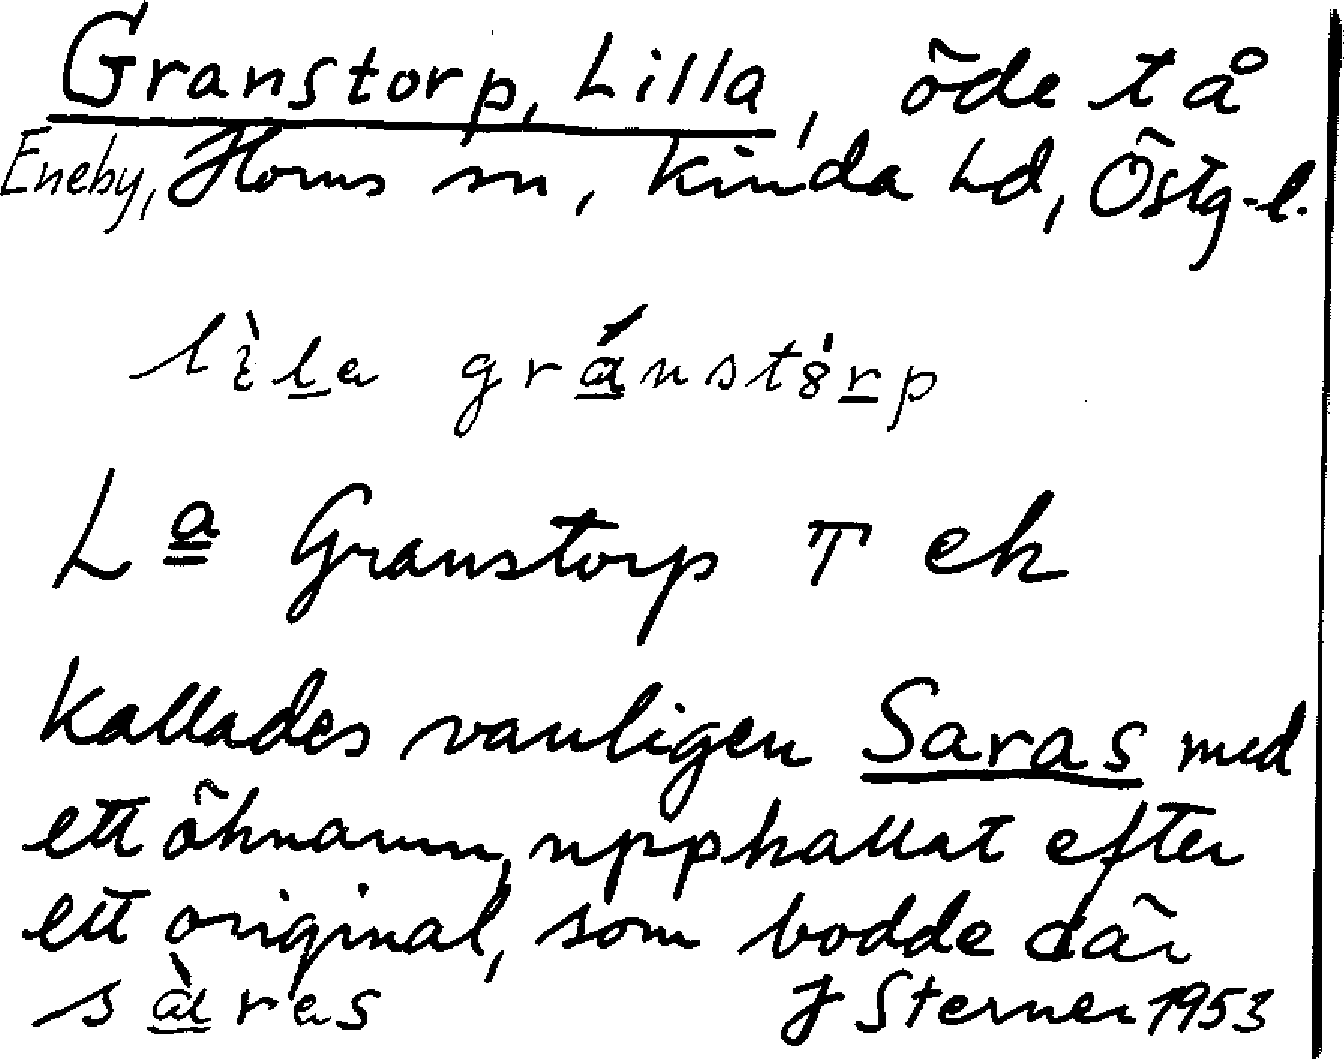 Granstorp, Lilla, öde t å
Eneby, Horns sn, Kinda hd, Östg.l.
lìla gránstȣ̍rp
La Granstorp T ek
Kallades vanligen Saras med
ett öknamn, uppkallat efter
ett original, som bodde där
sàras J Sterner 1953